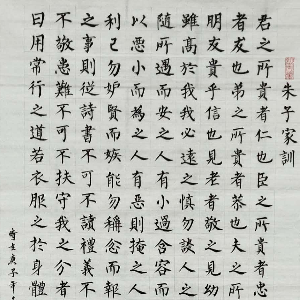 朱子家訓
君之所貴者仁也臣之所貴者忠
者友也弟之所貴者恭也夫之所
朋友貴乎信也見老者敬之見幼
雖高於我我必遠之慎勿談人之
隨所遇而安之人有小過含容而
以惡小而為之人有惡則掩之人
利己勿妒賢而嫉能勿稱忿而報
之事則從詩書不可不讀禮義不
不敬患難不可不扶守我之分者
日用常行之道若衣服之於身體
庚子年